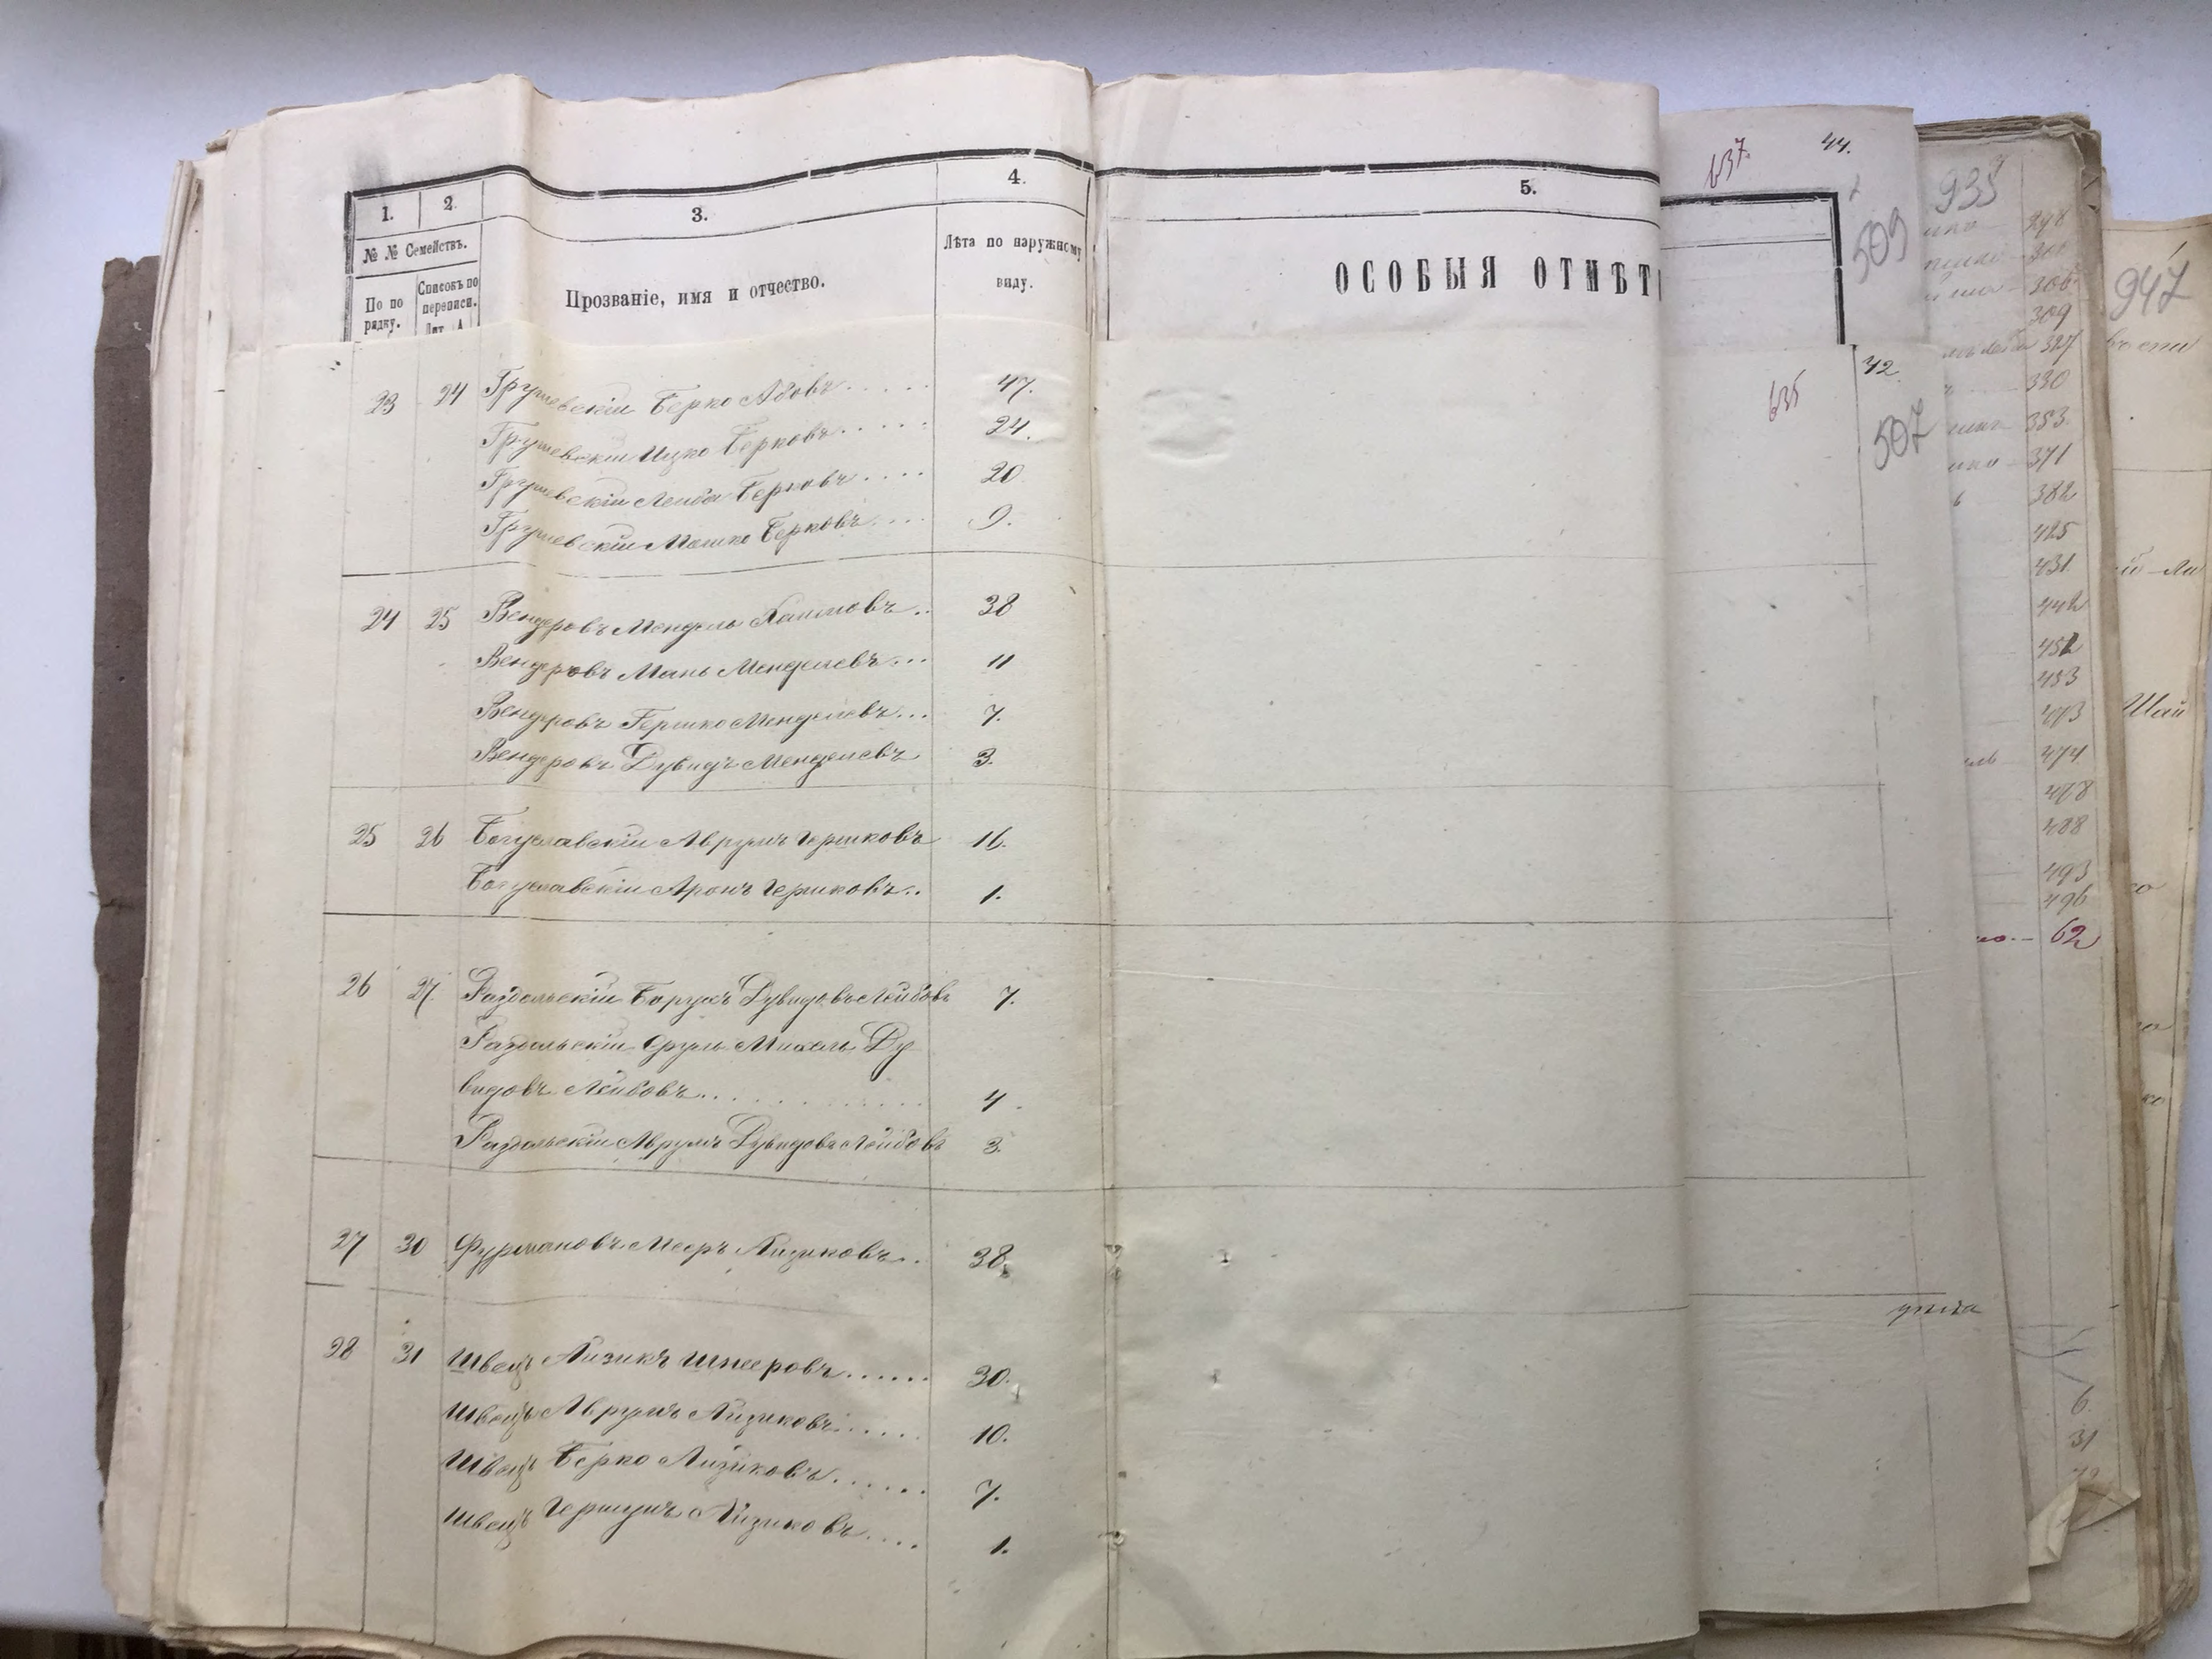 1. 2. 3. 4. 5.
№ № Семействъ.
По порядку.
Списокъ по переписи. Лит. А
Прозваніе, имя и отчество.
Лѣта по наружному виду.
ОСОБЫЯ ОТМѢТ
637 44.
509
635 42
507
935
947
23 24 Грушевскій Берко Абовъ 47.
Грушевскій Ицко Берковъ 24.
Грушевскій Лейба Берковъ 20
Грушевскій Мошко Берковъ 9.
24 25 Вендеровъ Мендель Хаимовъ 38
Вендеровъ Мендлевъ 11
Вендеровъ Гершко Менделевъ 7.
Вендеровъ Дувидъ Менделевъ 3.
25 26 Богуславскій Аврумъ Гершковъ 16.
Богуславскій Аронъ Гершковъ 1.
26 27 Раздольскій Борухъ Дувидовъ Лейбовъ 7.
Раздольскій Сруль Михель Ду
видовъ Лейбовъ 4
Раздольскій Аврумъ Дувидовъ Лейбовъ 3.
27 30 Фурмановъ Мееръ Айзиковъ 38.
28 31 Швецъ Айзикъ Шнееровъ 30.
Швецъ Аврумъ Айзиковъ 10.
Швецъ Берко Айзиковъ 7.
Швецъ Гершунъ Айзиковъ 1.
298
306
309
327
330
353
371
382
425
431
442
452
453
473
474
488
493
496
62
6
31
Шай